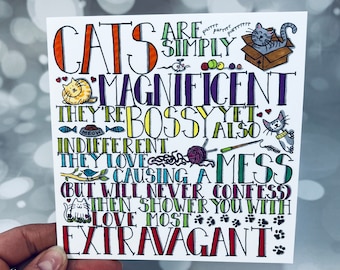 CATS ARE
SIMPLY
purrr purrrr purrrrr
MAGNIFICENT
THEY'RE BOSSY YET
ALSO
INDIFFERENT
THEY LOVE
CAUSING A MESS
(BUT WILL NEVER CONFESS)
THEN SHOWER YOU WITH
LOVE MOST
EXTRAVAGANT